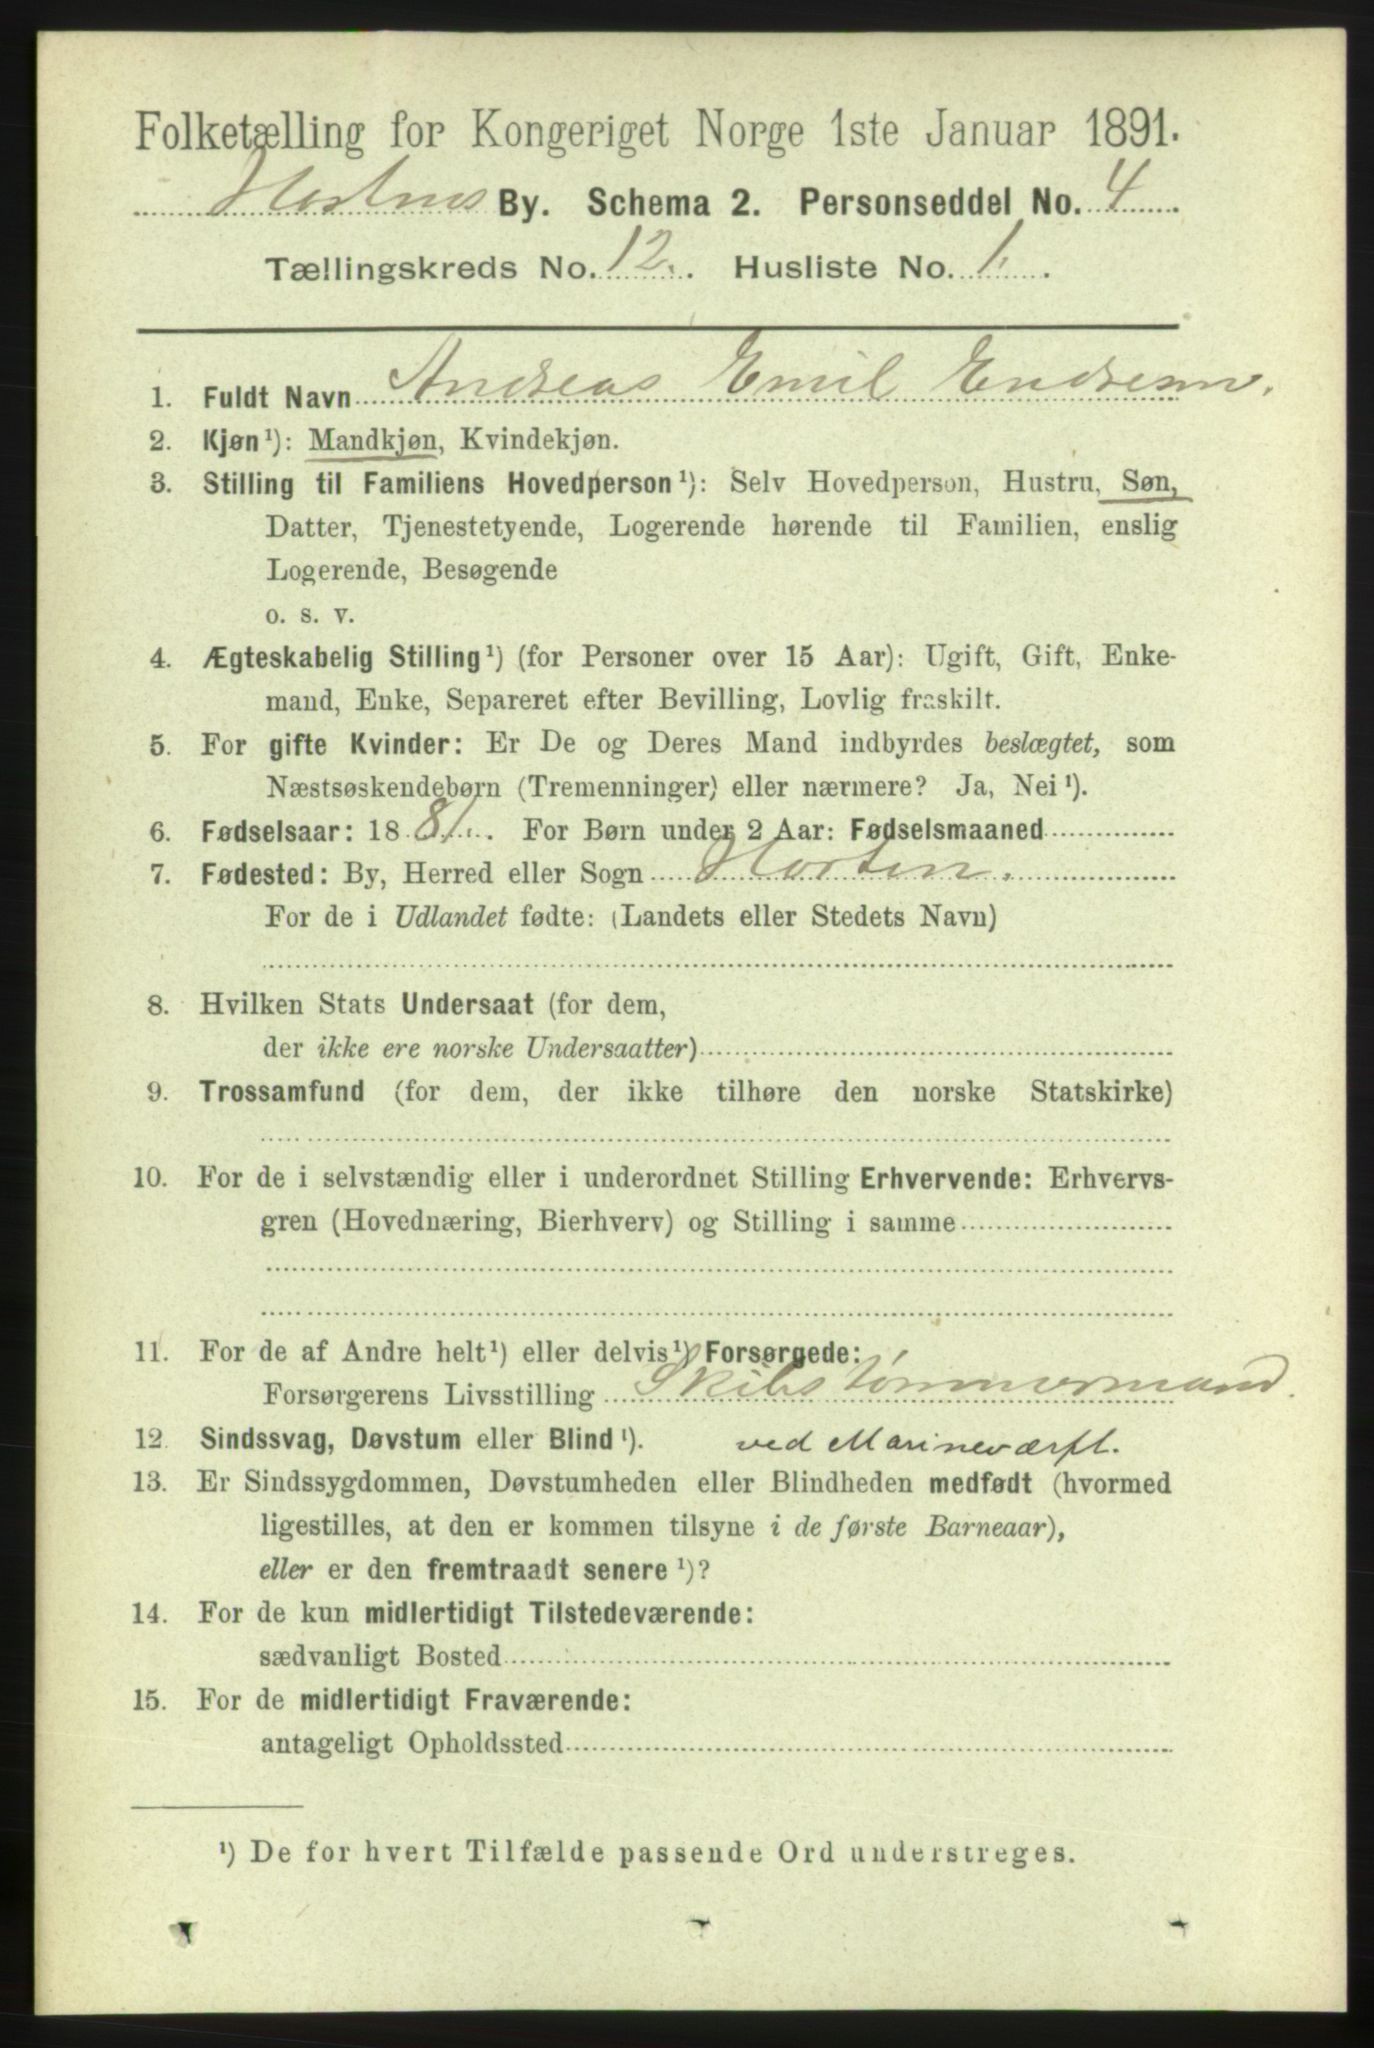 Folketælling for Kongeriget Norge 1ste Januar 1891.
Hortens By. Schema 2. Personseddel No. 4
Tællingskreds No. 12. Husliste No. 1.
1. Fuldt Navn Andreas Emil Endresen.
2. Kjøn¹): Mandkjøn, Kvindekjøn.
3. Stilling til Familiens Hovedperson¹): Selv Hovedperson, Hustru, Søn,
Datter, Tjenestetyende, Logerende hørende til Familien, enslig
Logerende, Besøgende
o. s. v.
4. Ægteskabelig Stilling¹) (for Personer over 15 Aar): Ugift, Gift, Enke-
mand, Enke, Separeret efter Bevilling, Lovlig fraskilt.
5. For gifte Kvinder: Er De og Deres Mand indbyrdes beslægtet, som
Næstsøskendebørn (Tremenninger) eller nærmere? Ja, Nei¹).
6. Fødselsaar: 1881. For Børn under 2 Aar: Fødselsmaaned
7. Fødested: By, Herred eller Sogn Horten.
For de i Udlandet fødte: (Landets eller Stedets Navn)
8. Hvilken Stats Undersaat (for dem,
der ikke ere norske Undersaatter)
9. Trossamfund (for dem, der ikke tilhøre den norske Statskirke)
10. For de i selvstændig eller i underordnet Stilling Erhvervende: Erhvervs-
gren (Hovednæring, Bierhverv) og Stilling i samme
11. For de af Andre helt¹) eller delvis¹) Forsørgede:
Forsørgerens Livsstilling Skibstømmermand.
12. Sindssvag, Døvstum eller Blind¹). ved Marineværft.
13. Er Sindssygdommen, Døvstumheden eller Blindheden medfødt (hvormed
ligestilles, at den er kommen tilsyne i de første Barneaar),
eller er den fremtraadt senere¹)?
14. For de kun midlertidigt Tilstedeværende:
sædvanligt Bosted
15. For de midlertidigt Fraværende:
antageligt Opholdssted
¹) De for hvert Tilfælde passende Ord understreges.